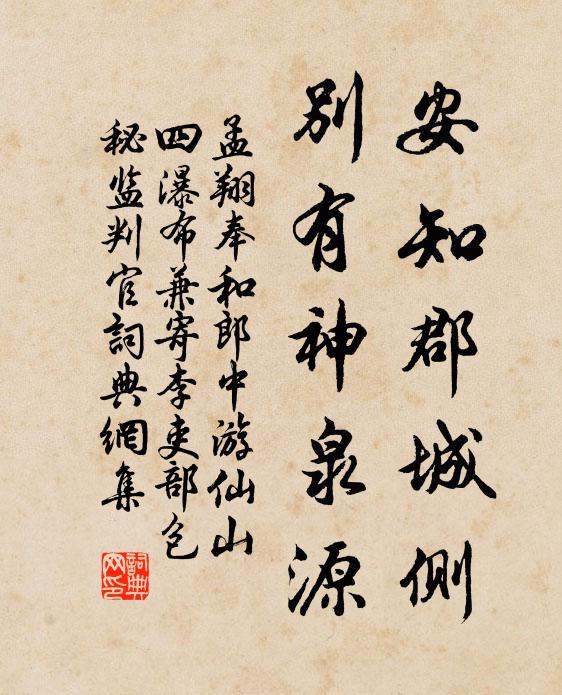 安知郡城側
別有神泉源
孟翔奉和郎中游仙山
四瀑布兼寄李吏部包
秘监判官詞典網集
詞典網印